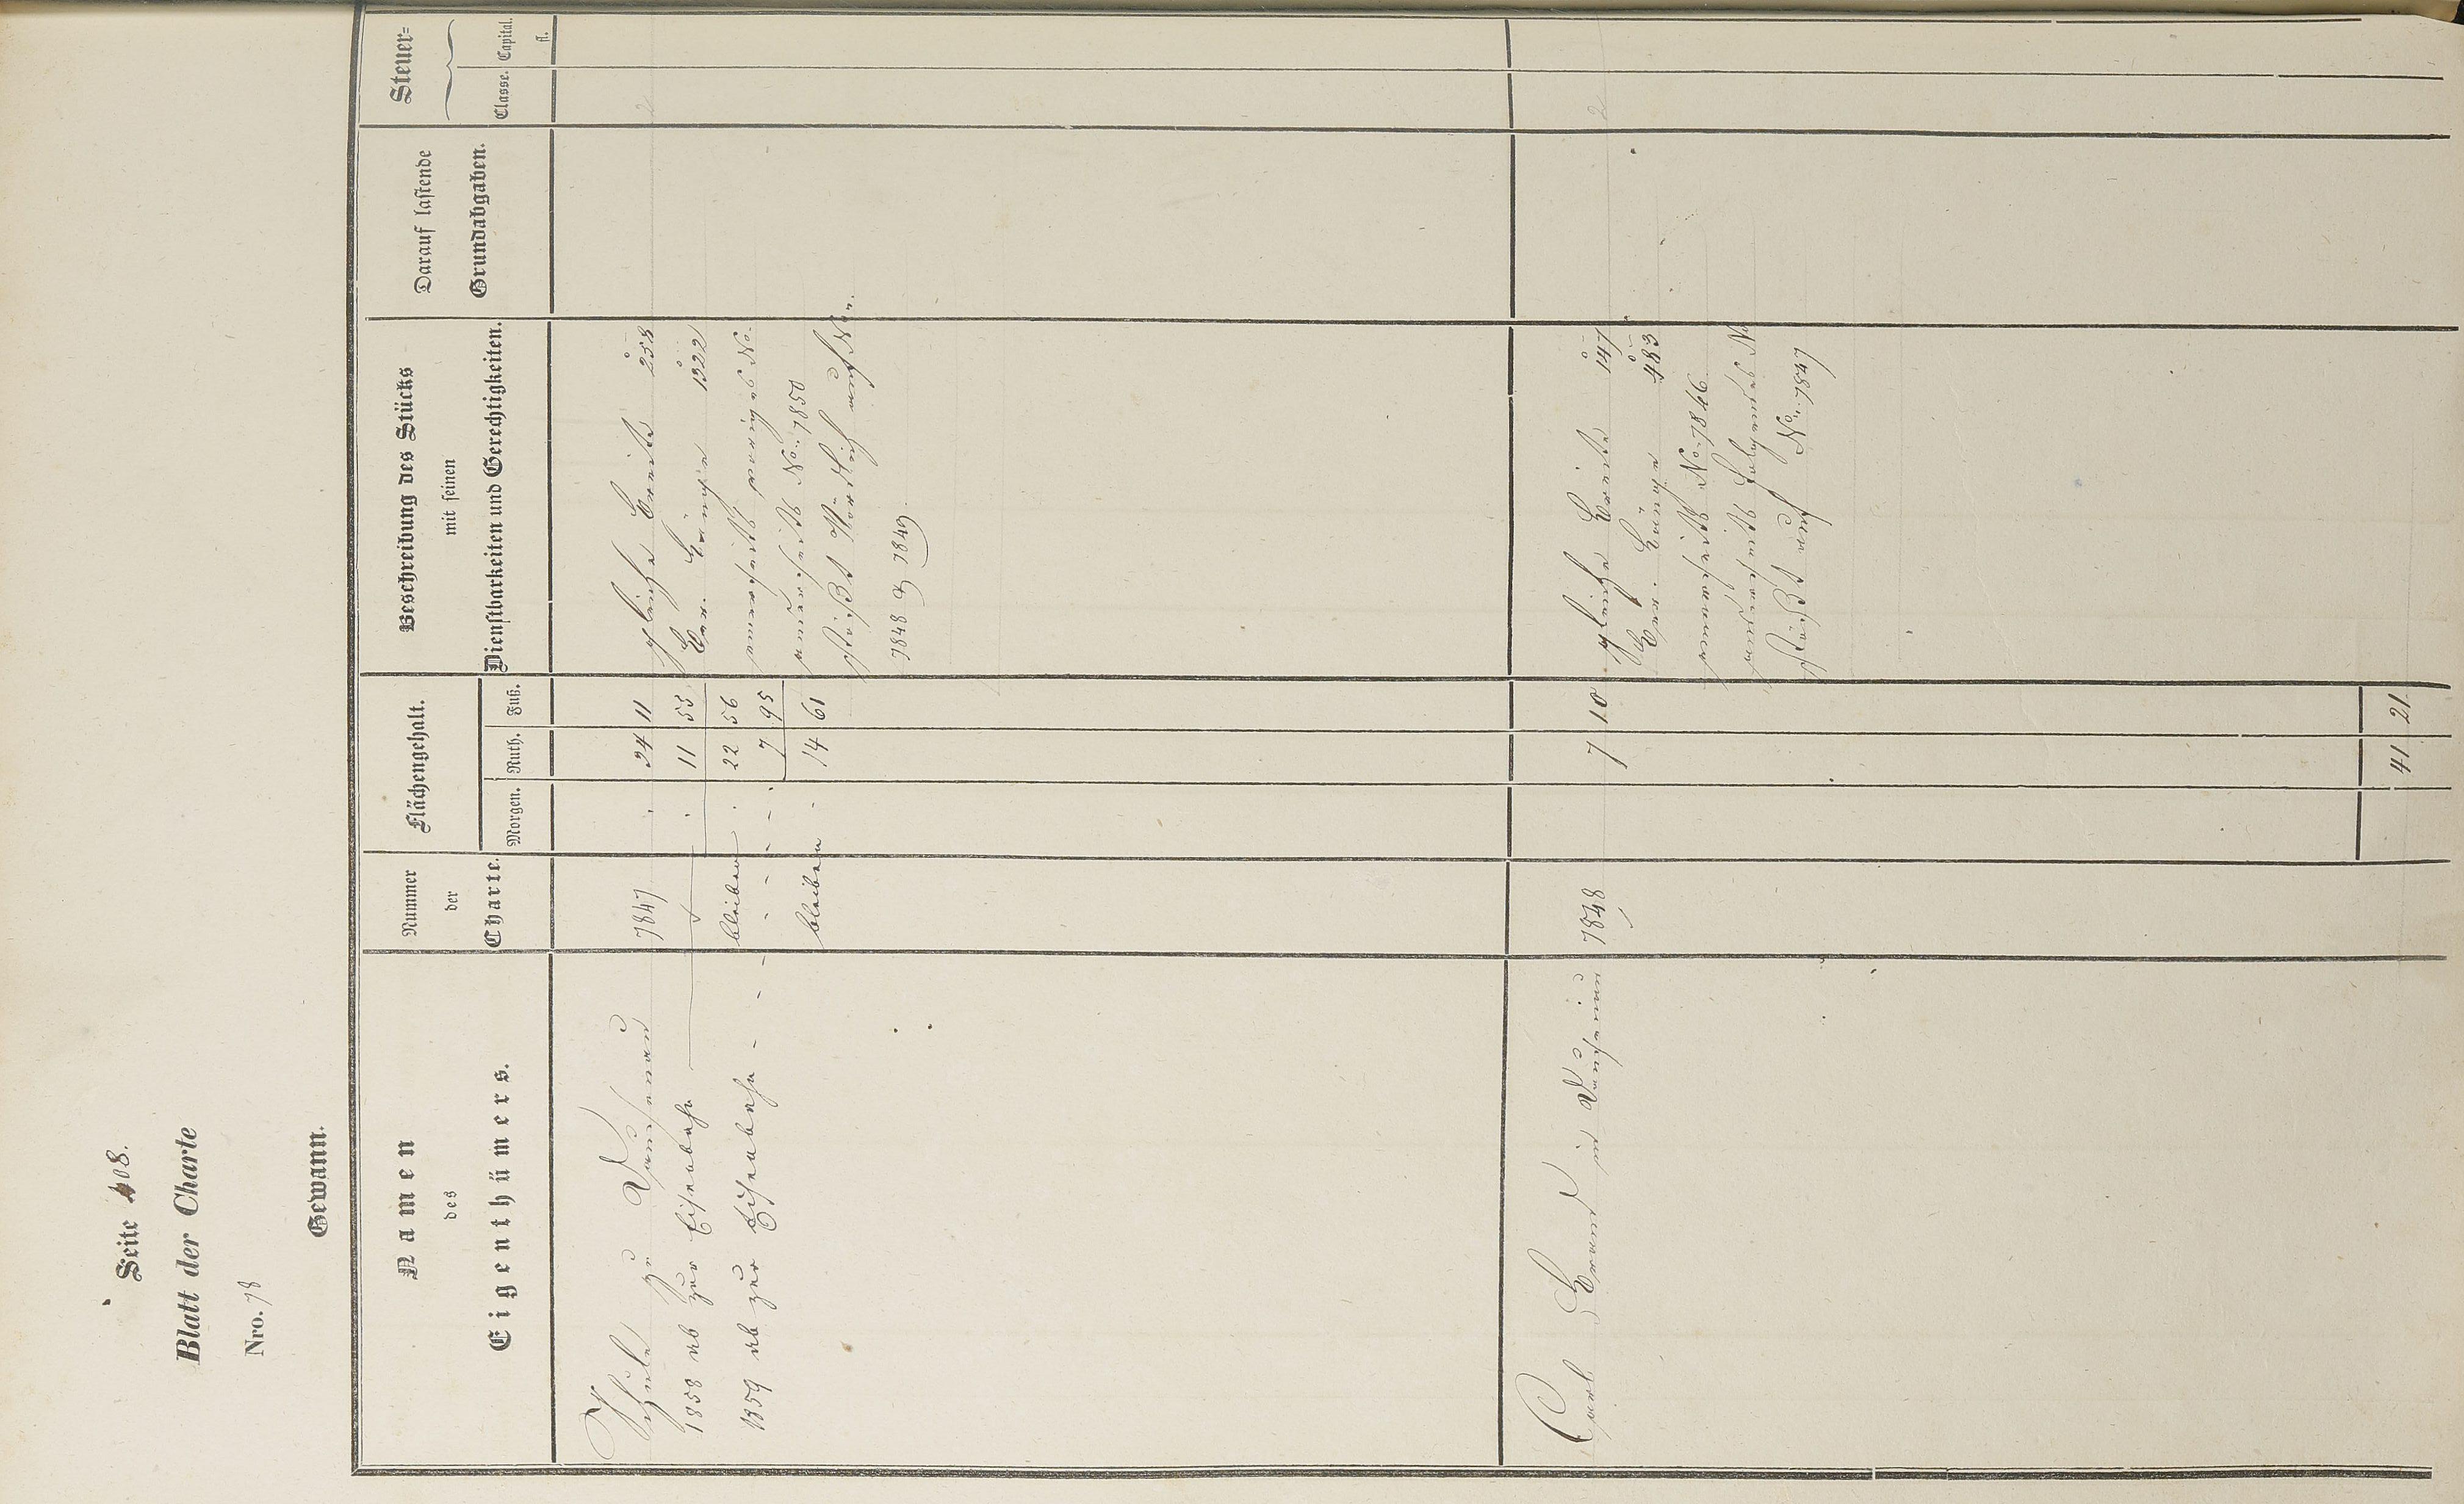 Seite 408.
Blatt der Charte
Nro. 78
Gewann.
Namen
des
Eigenthümers.
Nummer
der
Charte.
Flächengehalt.
Morgen. Ruth. Fuß.
Beschreibung des Stücks
mit seinen
Dienstbarkeiten und Gerechtigkeiten.
Darauf lastende
Grundabgaben.
Steuer=
Classe. Capital.
fl.
Schule zu Dausenau 7847 . 24 11 gleiche Breite 258 2
1858 ab zur Eisenbahn . 11 55 Ber. Länge 1322
bleiben . 22 56 einerseits voriges No.
1859 ab zur Eisenbahn - - - - - - 7 95 anderseits No. 7850
bleiben - 14 61 stößt nördlich auf No.
7848 & 7849.
Carl Brand in Dausenau 7848 7 10 gleiche Breite 147 2
Ber. Länge 483
einerseits No. 7846
anderseits folgendes No
stößt auf No. 7847
41 21